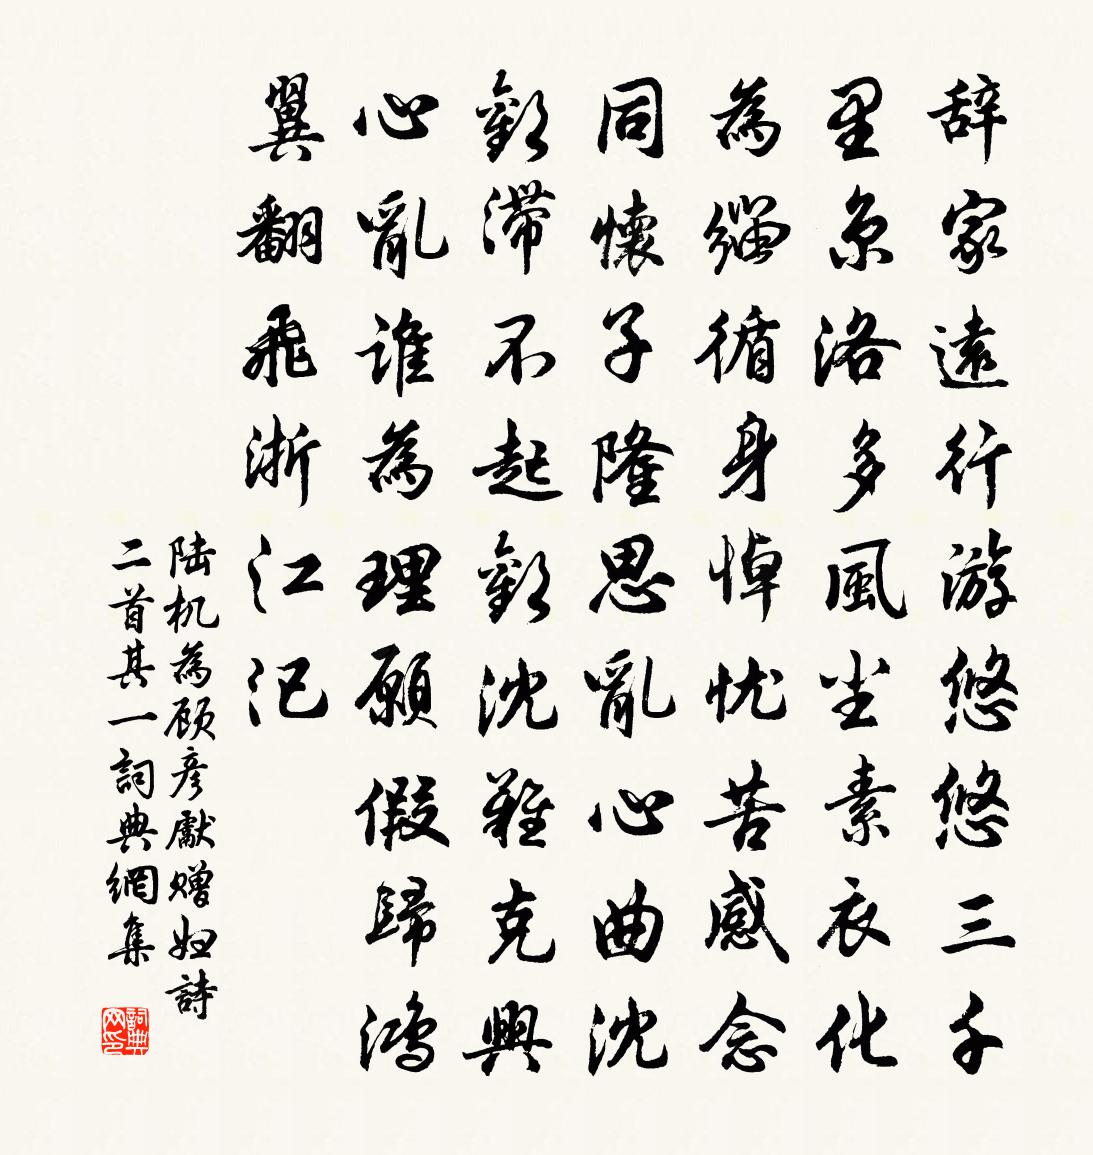 辞家遠行游悠悠三千
里京洛多風尘素衣化
為缁循身悼忧苦感念
同懷子隆思亂心曲沈
歡滯不起歡沈難克興
心亂誰為理願假歸鴻
翼翻飛浙江汜
陆机為顾彦獻赠妇詩
二首其一詞典網集
詞典网印